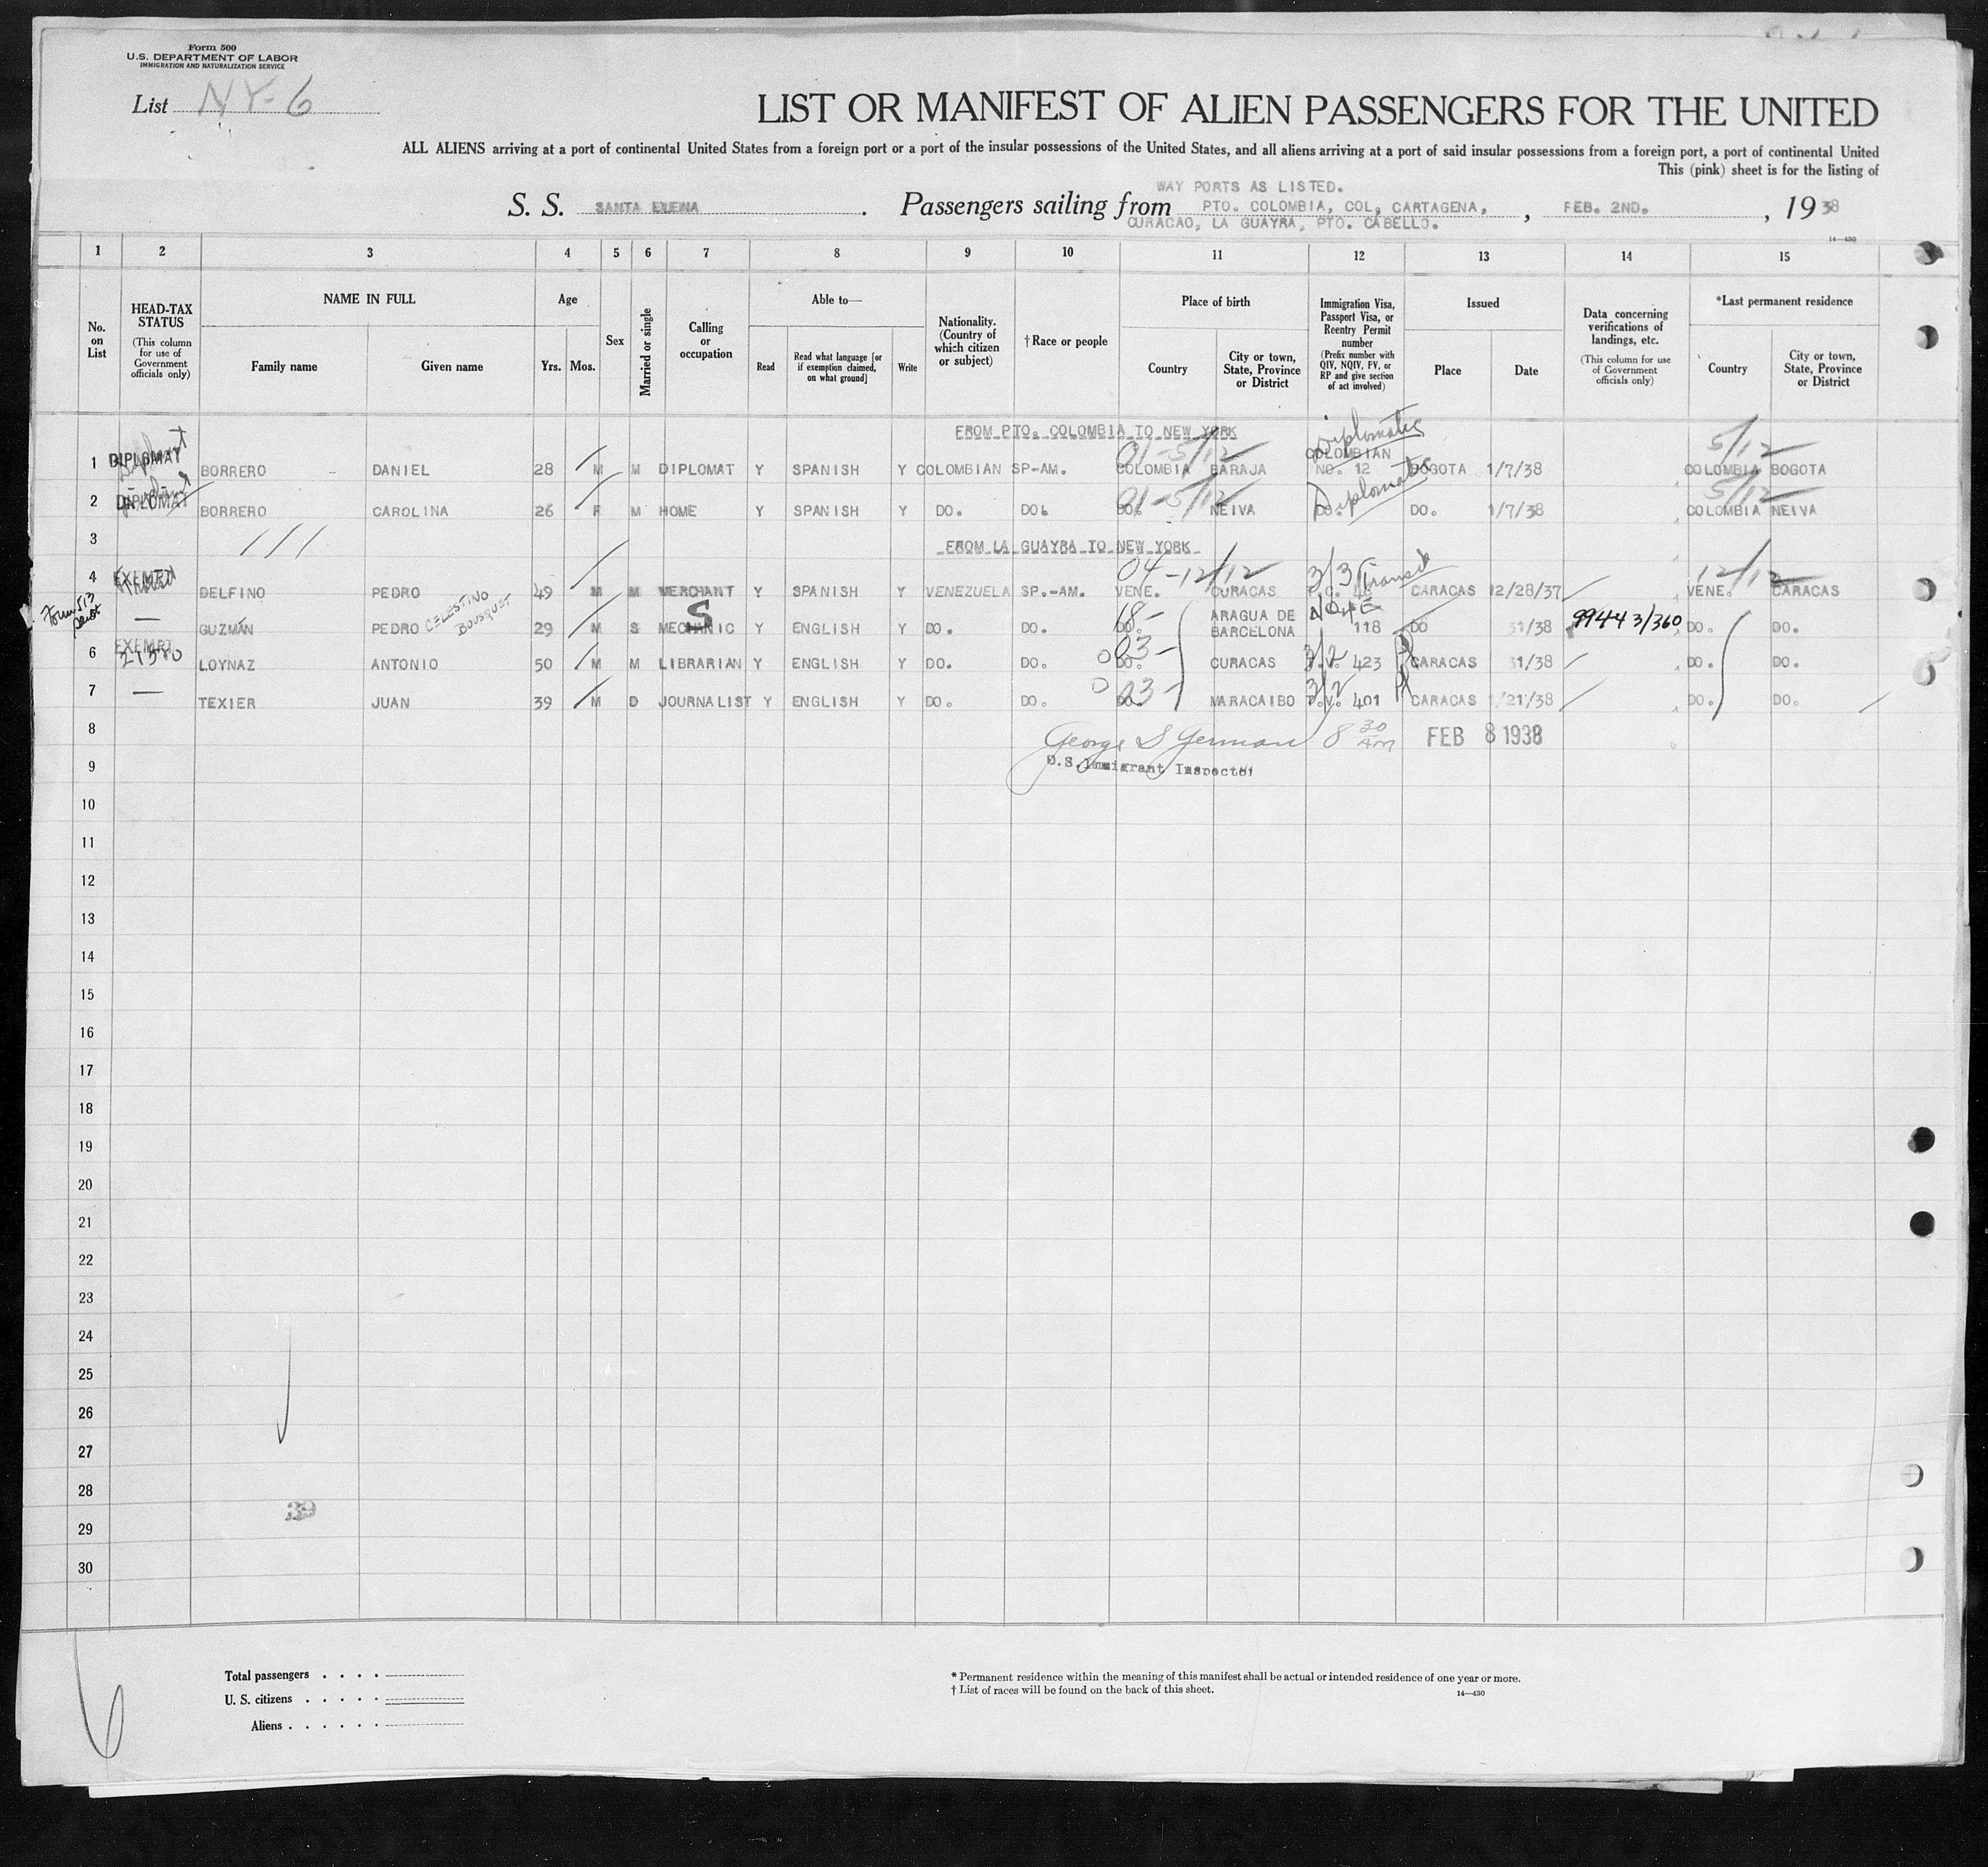 Form 500
U.S. DEPARTMENT OF LABOR
IMMIGRATION AND NATURALIZATION SERVICE
List NY-6
LIST OR MANIFEST OF ALIEN PASSENGERS FOR THE UNITED
ALL ALIENS arriving at a port of continental United States from a foreign port or a port of the insular possessions of the United States, and all aliens arriving at a port of said insular possessions from a foreign port, a port of continental United
This (pink) sheet is for the listing of
WAY PORTS AS LISTED.
S. S. SANTA ELENA . Passengers sailing from PTO. COLOMBIA, COL, CARTAGENA, , FEB. 2ND. , 1938
CURACAO, LA GUAYRA, PTO. CABELLO.
14—430
1 2 3 4 5 6 7 8 9 10 11 12 13 14 15
No. on List
HEAD-TAX STATUS (This column for use of Government officials only)
NAME IN FULL Family name Given name
Age Yrs. Mos.
Sex
Married or single
Calling or occupation
Able to— Read Read what language [or if exemption claimed, on what ground] Write
Nationality. (Country of which citizen or subject)
† Race or people
Place of birth Country City or town, State, Province or District
Immigration Visa, Passport Visa, or Reentry Permit number (Prefix number with QIV, NQIV, PV, or RP and give section of act involved)
Issued Place Date
Data concerning verifications of landings, etc. (This column for use of Government officials only)
*Last permanent residence Country City or town, State, Province or District
FROM PTO. COLOMBIA TO NEW YORK
01-5/12 Diplomatic 5/12
COLOMBIAN
1 DIPLOMAT BORRERO DANIEL 28 M M DIPLOMAT Y SPANISH Y COLOMBIAN SP-AM. COLOMBIA BARAJA NO. 12 BOGOTA 1/7/38 COLOMBIA BOGOTA
01-5/12 Diplomatic 5/12
2 DIPLOMAT BORRERO CAROLINA 26 F M HOME Y SPANISH Y DO. DO. DO. NEIVA DO. DO. 1/7/38 COLOMBIA NEIVA
3 / / /
FROM LA GUAYRA TO NEW YORK
04-12/12 3/3 Transit 12/12
4 EXEMPT DELFINO PEDRO 49 M M MERCHANT Y SPANISH Y VENEZUELA SP.-AM. VENE. CURACAS CARACAS 12/28/37 VENE. CARACAS
Form 513
— GUZMÁN PEDRO CELESTINO BOUSQUET 29 M S MECHANIC S Y ENGLISH Y DO. DO. DO. 18- ARAGUA DE BARCELONA 118 DO 31/38 99443/360 DO. DO.
6 EXEMPT LOYNAZ ANTONIO 50 M M LIBRARIAN Y ENGLISH Y DO. DO. DO. 03- CURACAS 3/2 423 CARACAS 31/38 DO. DO.
7 — TEXIER JUAN 39 M D JOURNALIST Y ENGLISH Y DO. DO. DO. 03- MARACAIBO 3/2 P.V. 401 CARACAS 1/21/38 DO. DO.
8 George S German 8 30 AM FEB 8 1938
9 U.S. Immigrant Inspector
10
11
12
13
14
15
16
17
18
19
20
21
22
23
24
25
26
27
28
39
29
30
6
Total passengers . . . .
U. S. citizens . . . . .
Aliens . . . . . .
* Permanent residence within the meaning of this manifest shall be actual or intended residence of one year or more.
† List of races will be found on the back of this sheet.
14—430